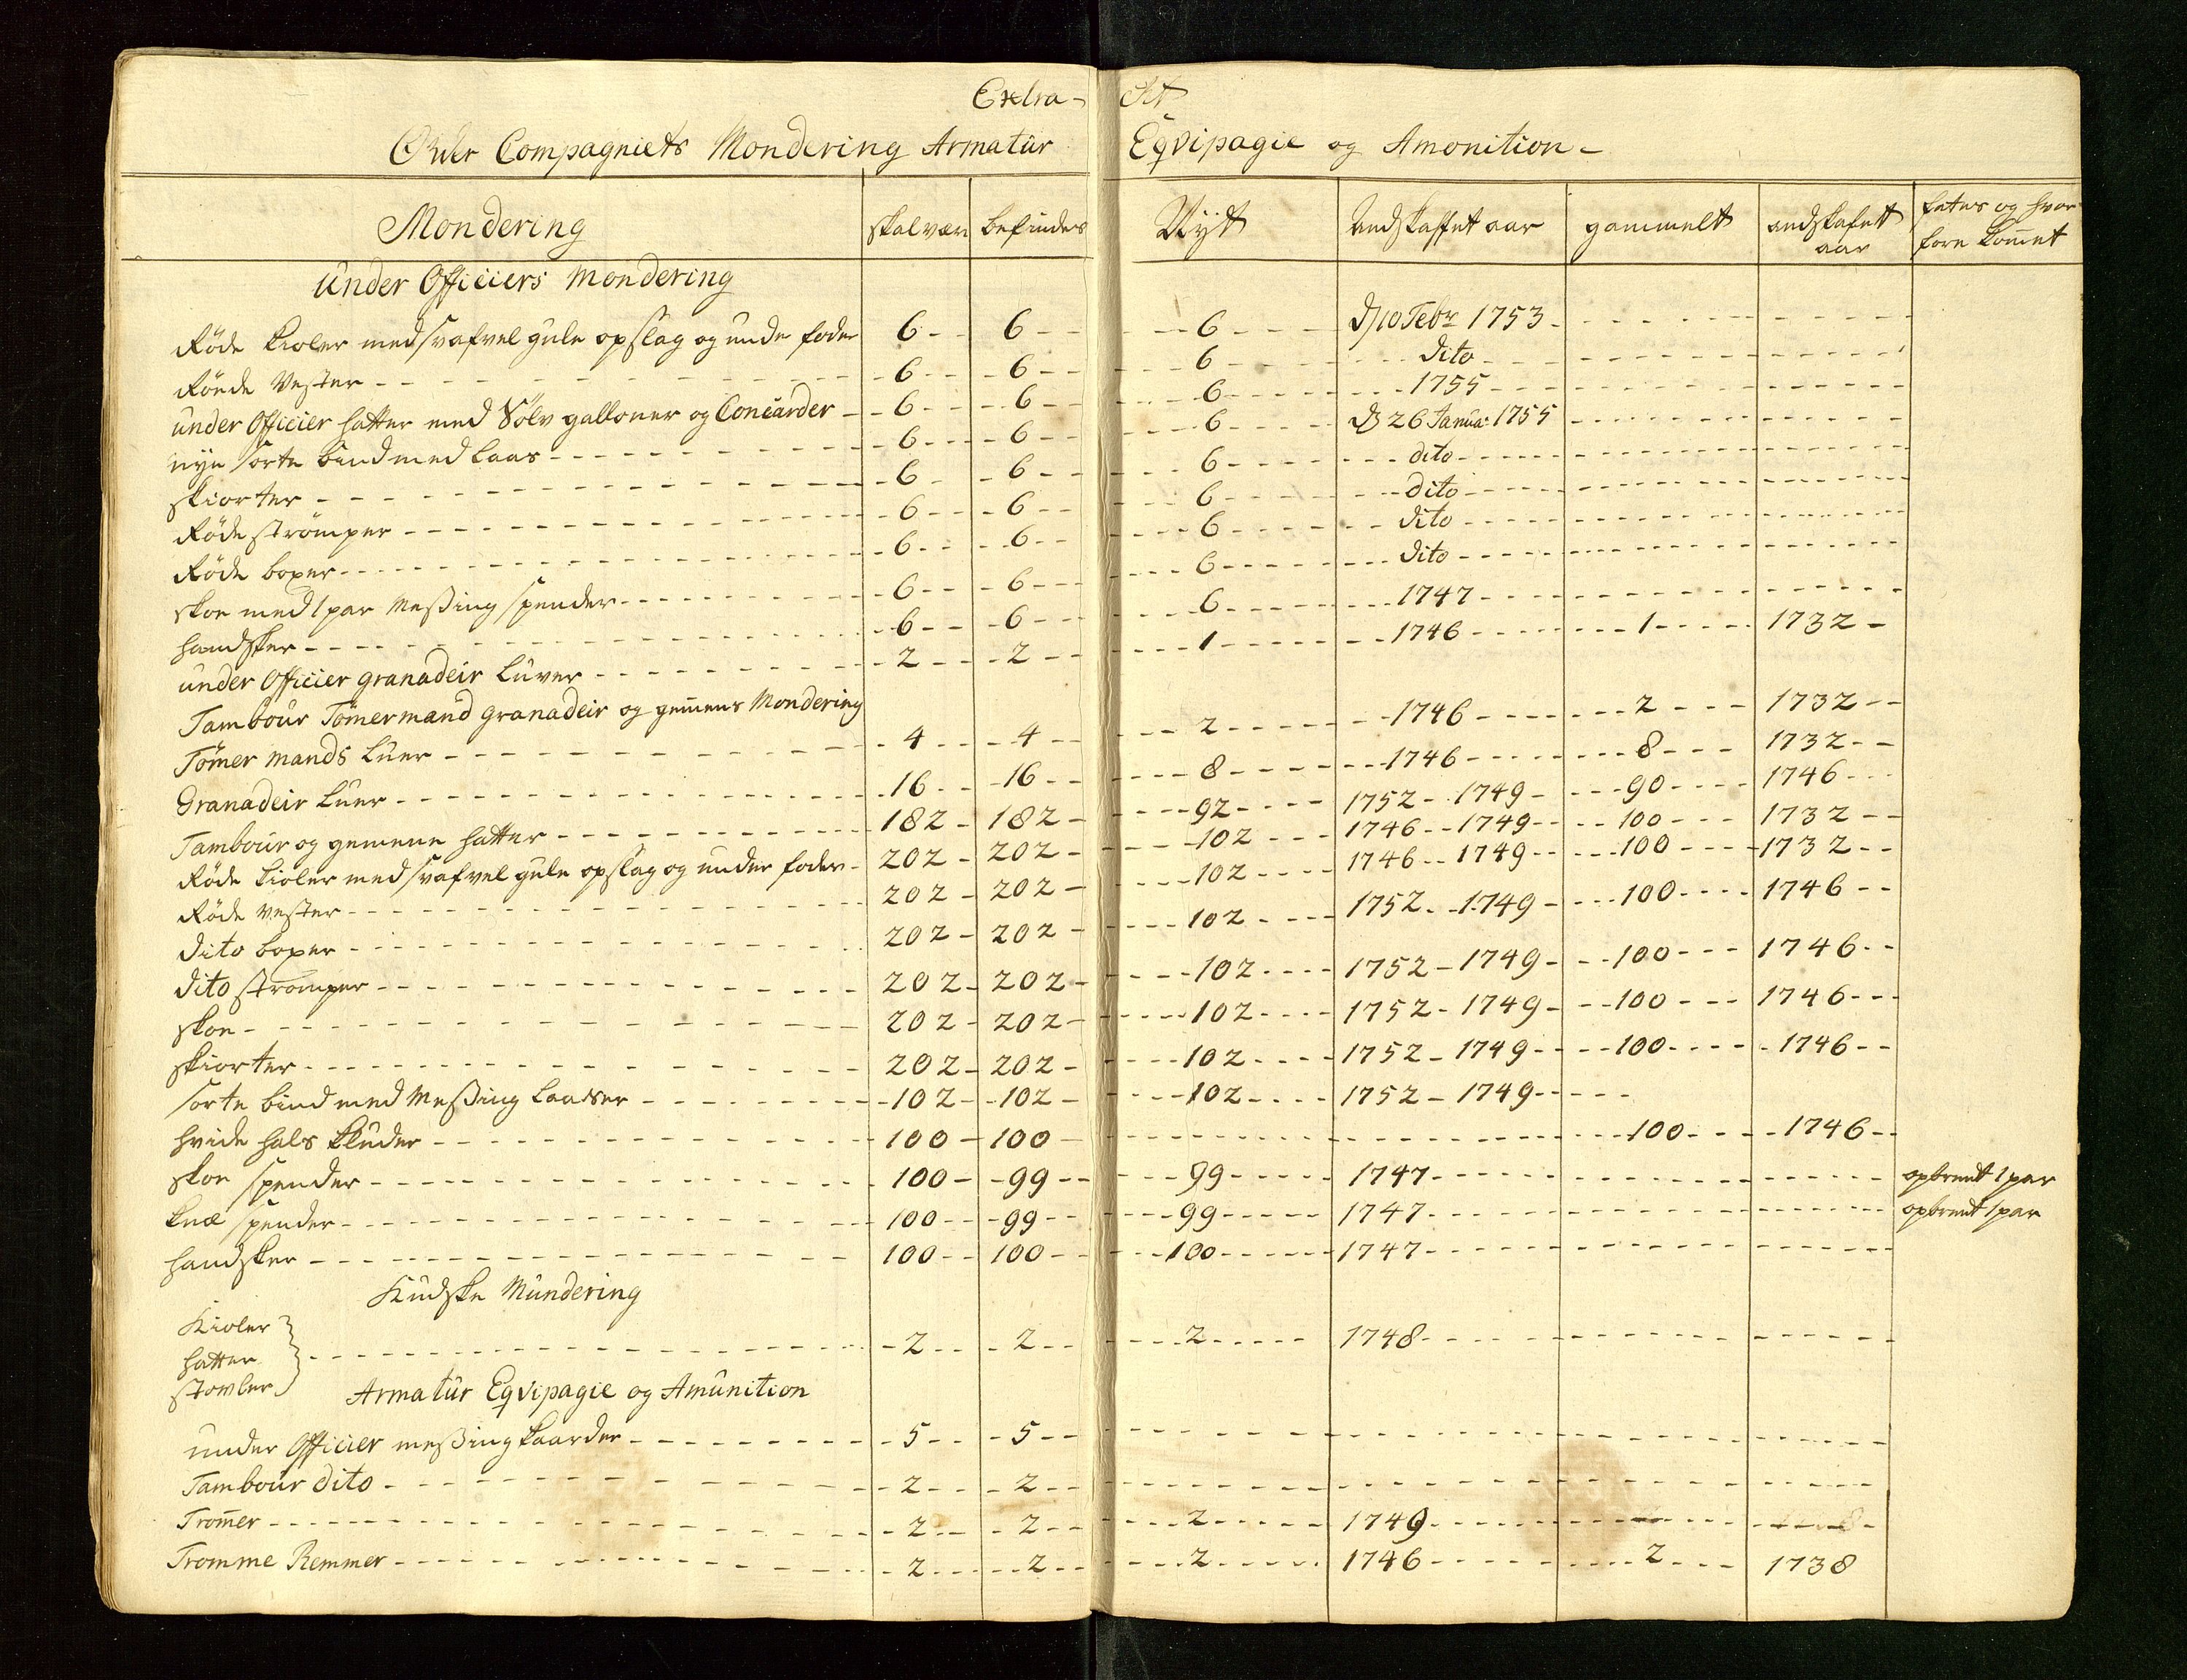 Extra-
Ofver Compagniets Mondering Armatur
Mondering skal være befindes
Under Officiers Mondering
Röde kioler med svafvel gule opslag og under foder 6 6
Röede Vester 6 6
under Officier hatter med Sölv galloner og Concarder 6 6
nÿe sorte bind med Laas 6 6
skiorter 6 6
Röde strömper 6 6
Röde boxer 6 6
skoe med 1 par Messing spender 6 6
handsker 6 6
under Officier granadeir Luver 2 2
Tambour Tömermand granadeir og gemeens Mondering
Tömer mands Luer 4 4
Granadeir Luer 16 16
Tambour og gemeene hatter 182 182
Röde kioler med svafvel gule opslag og under foder 202 202
Röde Vester 202 202
Dito boxer 202 202
Dito strömper 202 202
skoe 202 202
skiorter 202 202
sorte bind med Messing Laaser 102 102
hvide hals kluder 100 100
skoe spender 100 99
knæ spender 100 99
handsker 100 100
Kudske Mundering
Kioler
hatter 2 2
stövler
Armatur Eqvipagie og Amunition
under Officier messing kaarder 5 5
Tambour dito 2 2
Tromer 2 2
Tromme Remmer 2 2
ckt
Eqvipagie og Amonition
Nÿt andskaffet aar gammelt andskafet aar fates og hvor fore komet
6 d 10 Febr 1753
6 Dito
6 1755
6 d 26 Janua: 1755
6 dito
6 dito
6 dito
6 dito
6 1747
1 1746 1 1732
2 1746 2 1732
8 1746 8 1732
92 1752 1749 90 1746
102 1746 1749 100 1732
102 1746 1749 100 1732
102 1752 1749 100 1746
102 1752 1749 100 1746
102 1752 1749 100 1746
102 1752 1749 100 1746
102 1752 1749
100 1746
99 1747 opbrendt 1 par
99 1747 opbrendt 1 par
100 1747
2 1748
2 1749
2 1746 2 1738